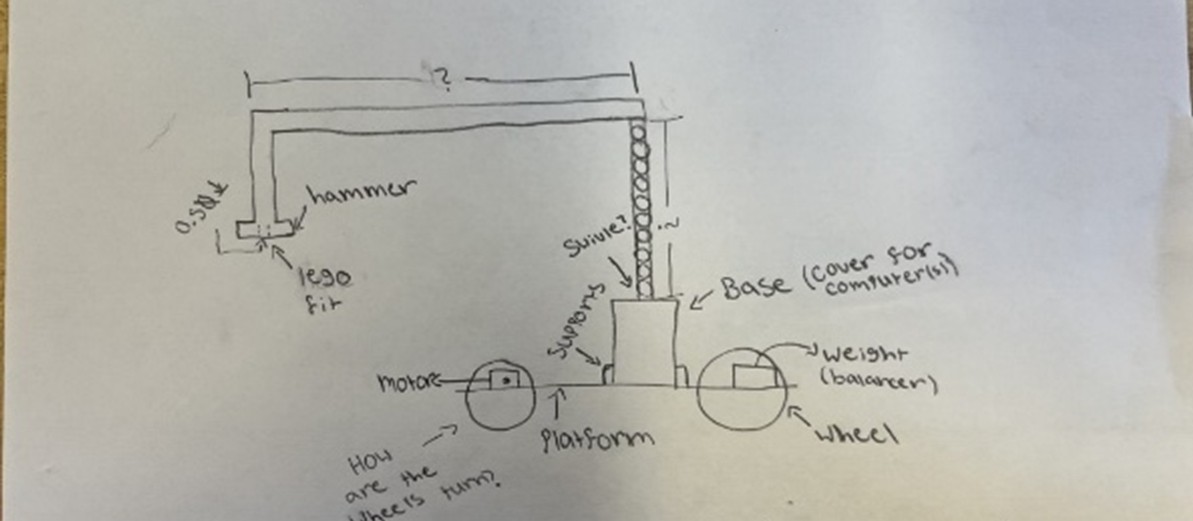 ?
hammer
lego
fit
Suivle?
?
Base (cover for
computer(s))
Supports
motor
weight
(balancer)
Platform
wheel
How
are the
wheels turn?